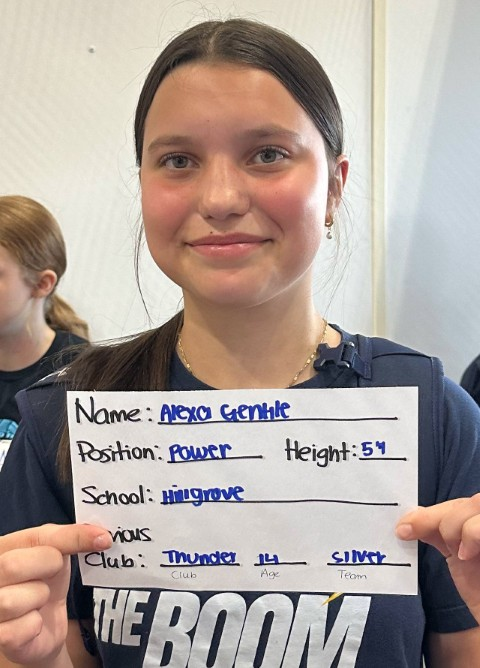 Name: Alexa Gentile
Position: Power Height: 5'4
School: Hillgrove
vious
Club: Thunder 14 Silver
Club Age Team
THE BOOM